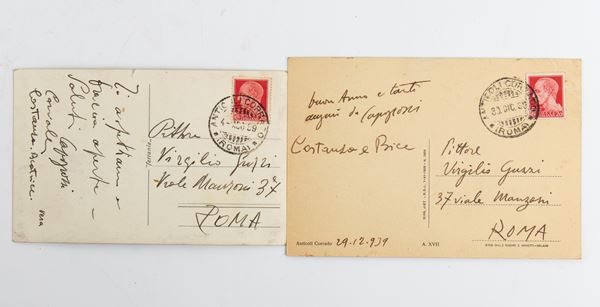 Ti aspettiamo a
braccia aperte -
Saluti Capogrossi
Costanza, Beatrice
ANTICOLI CORRADO
(ROMA)
Pittore
Virgilio Guzzi
Viale Manzoni 37
ROMA
buon Anno e tanti
auguri da Capogrossi
Costanza e Bice
Anticoli Corrado 29.12.939
A. XVII
ANTICOLI CORRADO
31.DIC.39
(ROMA)
Pittore
Virgilio Guzzi
37 viale Manzoni
ROMA